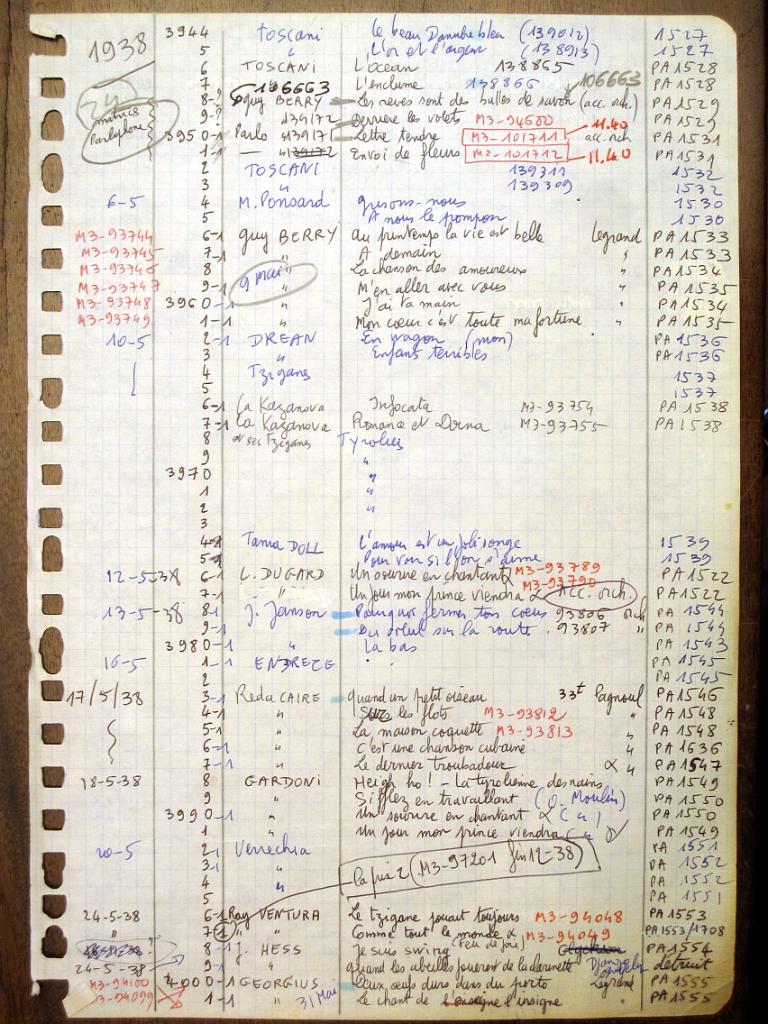 1938 3944 Toscani le beau Danube bleu (139012) 1527
5 " L'or et l'argent (138913) 1527
6 TOSCANI L'océan 138865 PA 1528
7 106663 L'enclume 138866 106663 PA 1528
8-? guy BERRY Les rêves sont des bulles de savon (acc. orch.) PA 1529
matrices Parlophone 9-? 139172 Derrière les volets M3-94600 PA 1529
3950-1 Parlo 139171 Lettre tendre M3-101711 11.40 acc. orch PA 1531
1-1 — 139172 Envoi de fleurs M3-101712 11.40 PA 1531
2 TOSCANI 139311 1532
3 " 139309 1532
6-5 4 M. Ponsard grisons-nous 1530
5 A nous le pompon 1530
M3-93744 6-1 guy BERRY au printemps la vie est belle Legrand PA 1533
M3-93745 7-1 " A demain " PA 1533
M3-93746 8 9 mai " La chanson des amoureux " PA 1534
M3-93747 9-1 " M'en aller avec vous " PA 1535
M3-93748 3960-1 " J'ai ta main " PA 1534
M3-93749 1-1 " Mon coeur c'est toute ma fortune " PA 1535
10-5 2-1 DREAN En wagon (mon) PA 1536
3 " Enfants terribles PA 1536
4 Tziganes 1537
5 1537
6-1 La Kazanova Infocata M3-93754 PA 1538
7-1 La Kazanova Romana et Dorna M3-93755 PA 1538
8 et ses Tziganes Tyroliens
9 "
3970 "
1 "
2 "
3
4-1 Tania DOLL L'amour est un joli songe 1539
5-1 Pour vous si l'on s'aime 1539
12-5-38 6-1 L. DUGARD Un sourire en chantant M3-93789 PA 1522
7-1 " Un jour mon prince viendra M3-93790 acc. orch. PA 1522
13-5-38 8-1 J. Janson Pourquoi fermer ton coeur 93806 orch PA 1544
9-1 Du soleil sur la route 93807 " PA 1544
3980-1 " La bas PA 1543
16-5 1-1 ENDREZE . . PA 1545
2 PA 1545
17/5/38 3-1 Reda CAIRE quand un petit oiseau 33t Pagnoul PA 1546
4-1 " Sur les flots M3-93812 " PA 1548
5-1 " La maison coquette M3-93813 " PA 1548
6-1 " C'est une chanson cubaine " PA 1636
7-1 " Le dernier troubadour " PA 1547
18-5-38 8 GARDONI Heigh ho! - La tyrolienne des nains PA 1549
9 " Sifflez en travaillant (J. Moulin) PA 1550
3990-1 " Un sourire en chantant (") PA 1550
1 " Un jour mon prince viendra (") PA 1549
20-5 2-1 Verrechia PA 1551
3-1 " la fois 2 (M3-97201 fin 12-38) PA 1552
4 " PA 1552
5 PA 1551
24-5-38 6-1 Ray VENTURA Le tzigane jouait toujours M3-94048 PA 1553
" 7-1 " Comme tout le monde M3-94049 PA 1553/1708
8-1 J. HESS Je suis swing (Feu de joie) PA 1554
24-5-38 9-1 " quand les abeilles joueront de la clarinette Django détruit
M3-94100 4000-1 GEORGIUS Deux oeufs durs dans du porto Legrand PA 1555
M3-94099 1-1 " 31 Mai Le chant de l'insigne " PA 1555